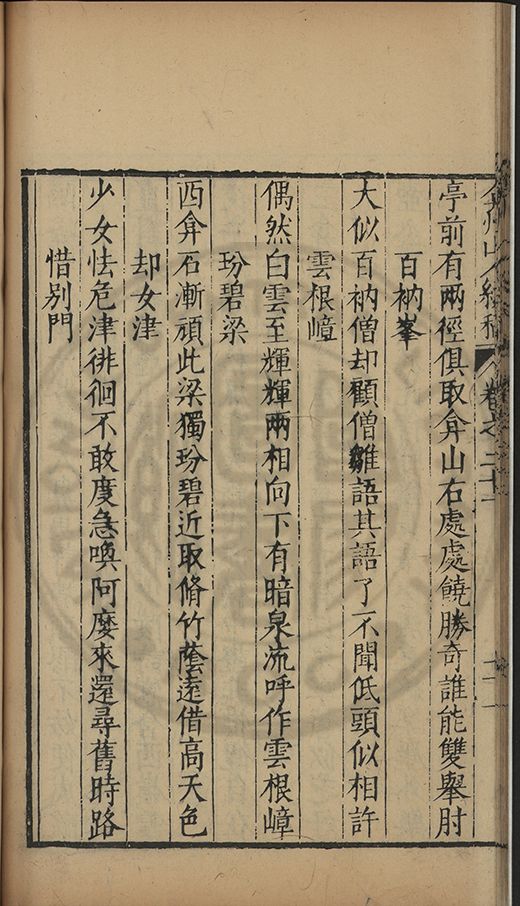 亭前有兩徑俱取弇山右處處饒勝竒誰能雙舉肘
百衲峯
大似百衲僧却顧僧雛語其語了不聞低頭似相許
雲根嶂
偶然白雲至輝輝兩相向下有暗泉流呼作雲根嶂
玢碧梁
西弇石漸頑此梁獨玢碧近取脩竹蔭遠借高天色
却女津
少女怯危津徘徊不敢度急喚阿麼來還尋舊時路
惜別門